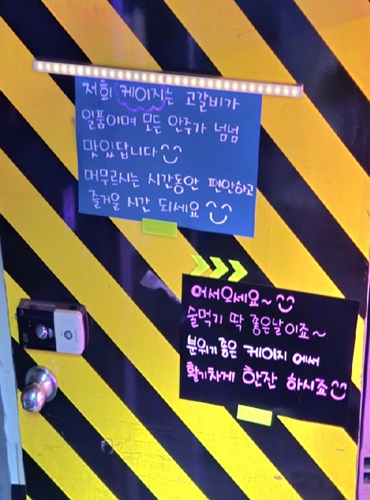 저희 케이지는 고갈비가
일품이며 모든 안주가 넘넘
맛있답니다
머무르시는 시간동안 편안하고
즐거운 시간 되세요
어서오세요~
술먹기 딱 좋은날이죠~
분위기 좋은 케이지 에서
활기차게 한잔 하시죠